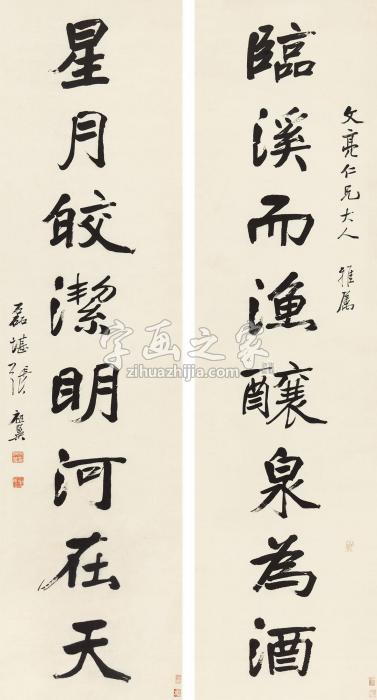 文亮仁兄大人 雅属
臨溪而漁釀泉為酒
星月皎潔明河在天
磊堪張祖翼
字画之家
zihuazhijia.com